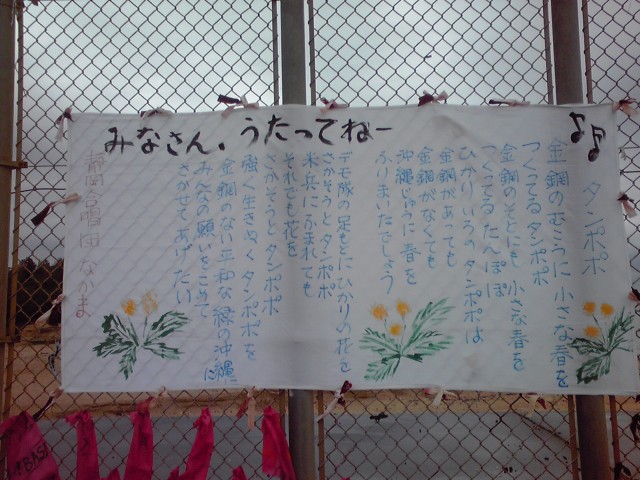 みなさん、うたってねー
タンポポ
金網のむこうに 小さな春を
つくってるタンポポ
金網のそとにも 小さな春を
つくってる たんぽぽ
ひかりいろの タンポポは
金網があっても
金網がなくても
沖縄じゅうに 春を
ふりまいたでしょう
デモ隊の足もとに ひかりの花を
さかそうと タンポポ
米兵に ふまれても
それでも 花を
さかそうと タンポポ
強く生きぬく タンポポを
金網のない 平和な 緑の沖縄に
みんなの願いをこめて
さかせてあげたい
静岡合唱団 なかま
BASE